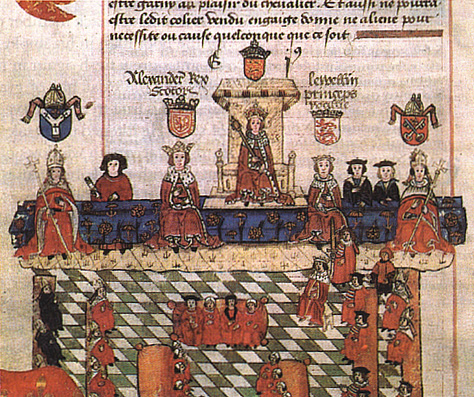 au plaisir du chevalier. Et aussi ne pourra
estre ledit colier vendu engaige donne ne aliene pour
necessite ou cause quelconque que ce soit.
E
Alexander Rex
Scotor
lewellin
princeps